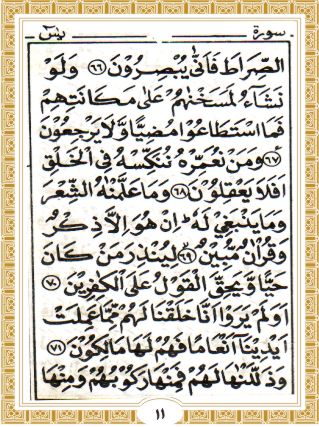 سورة يٰسٓ
الصِّرَاطَ فَاَنّٰى يُبْصِرُوْنَ ﴿٦٦﴾ وَلَوْ
نَشَآءُ لَمَسَخْنٰهُمْ عَلٰى مَكَانَتِهِمْ
فَمَا اسْتَطَاعُوْا مُضِيًّا وَّلَا يَرْجِعُوْنَ
﴿٦٧﴾ وَمَنْ نُّعَمِّرْهُ نُنَكِّسْهُ فِى الْخَلْقِ
اَفَلَا يَعْقِلُوْنَ ﴿٦٨﴾ وَمَا عَلَّمْنٰهُ الشِّعْرَ
وَمَا يَنْبَغِيْ لَهٗ اِنْ هُوَ اِلَّا ذِكْرٌ
وَّقُرْاٰنٌ مُّبِيْنٌ ﴿٦٩﴾ لِّيُنْذِرَ مَنْ كَانَ
حَيًّا وَّيَحِقَّ الْقَوْلُ عَلَى الْكٰفِرِيْنَ ﴿٧٠﴾
اَوَلَمْ يَرَوْا اَنَّا خَلَقْنَا لَهُمْ مِّمَّا عَمِلَتْ
اَيْدِيْنَا اَنْعَامًا فَهُمْ لَهَا مَالِكُوْنَ ﴿٧١﴾
وَذَلَّلْنٰهَا لَهُمْ فَمِنْهَا رَكُوْبُهُمْ وَمِنْهَا
١١